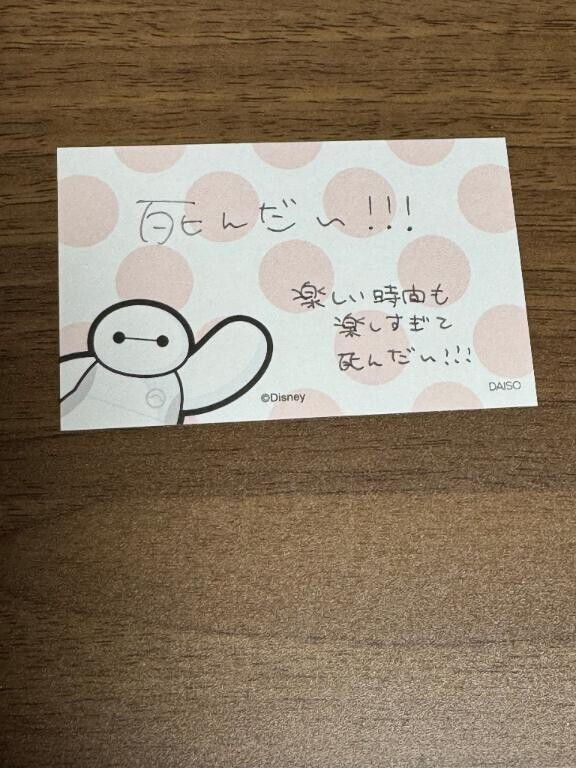 死んだい!!!
楽しい時間も
楽しすぎて
死んだい!!!
©Disney
DAISO